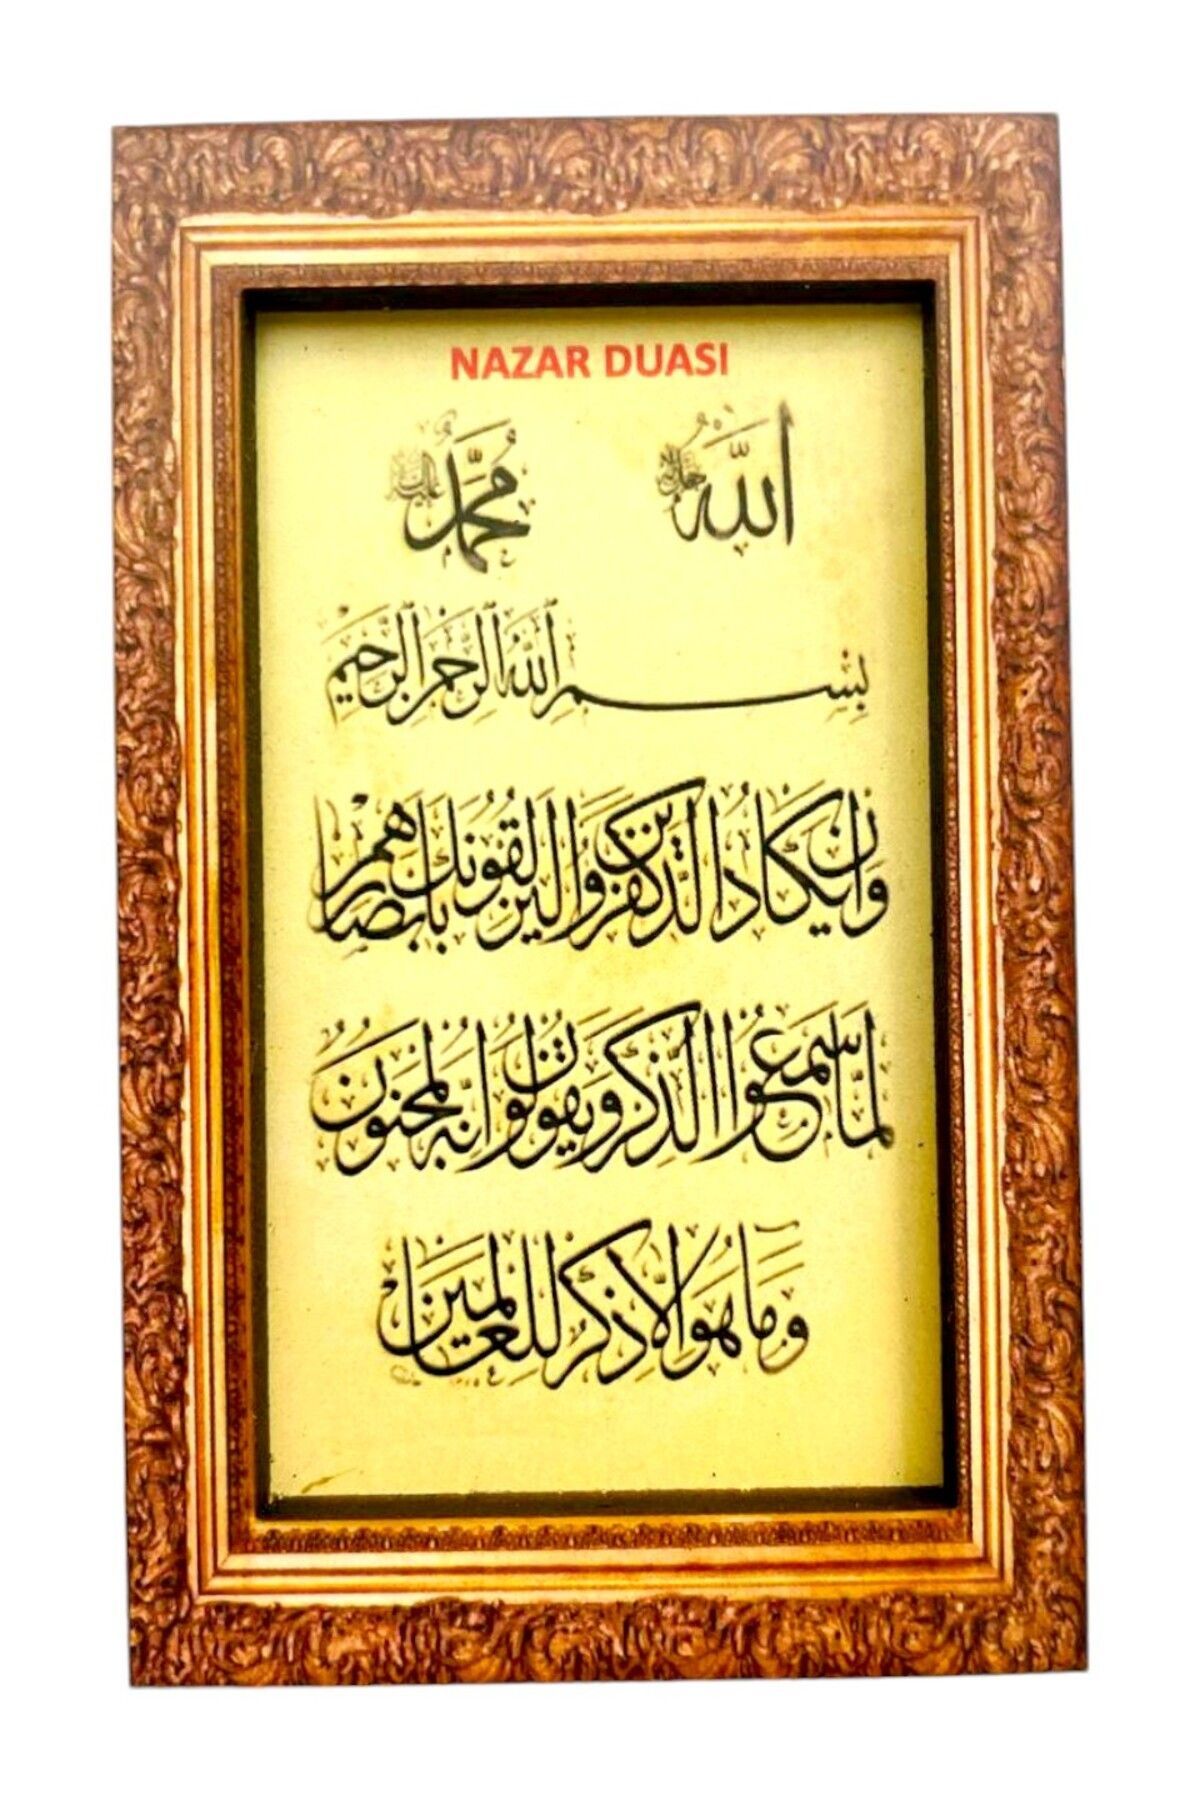 NAZAR DUASI
اللّٰه جل جلاله محمد عليه السلام
بِسْمِ اللّٰهِ الرَّحْمٰنِ الرَّحِيمِ
وَاِنْ يَكَادُ الَّذِينَ كَفَرُوا لَيُزْلِقُونَكَ بِاَبْصَارِهِمْ
لَمَّا سَمِعُوا الذِّكْرَ وَيَقُولُونَ اِنَّهُ لَمَجْنُونٌ
وَمَا هُوَ اِلَّا ذِكْرٌ لِلْعَالَمِينَ